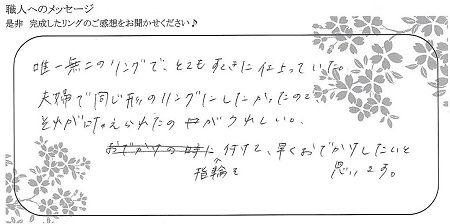 職人へのメッセージ
是非 完成したリングのご感想をお聞かせください♪
唯一無二のリングで、とてもすてきに仕上っていた。
夫婦で同じ形のリングにしたかったので、
それがかなえられたのがうれしい。
指輪を付けて、早くおでかけしたいと
思います。